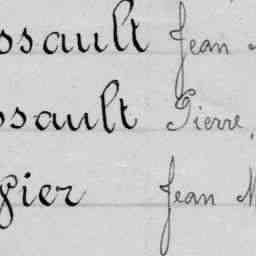 ssault Jean
ssault Pierre,
gier Jean M